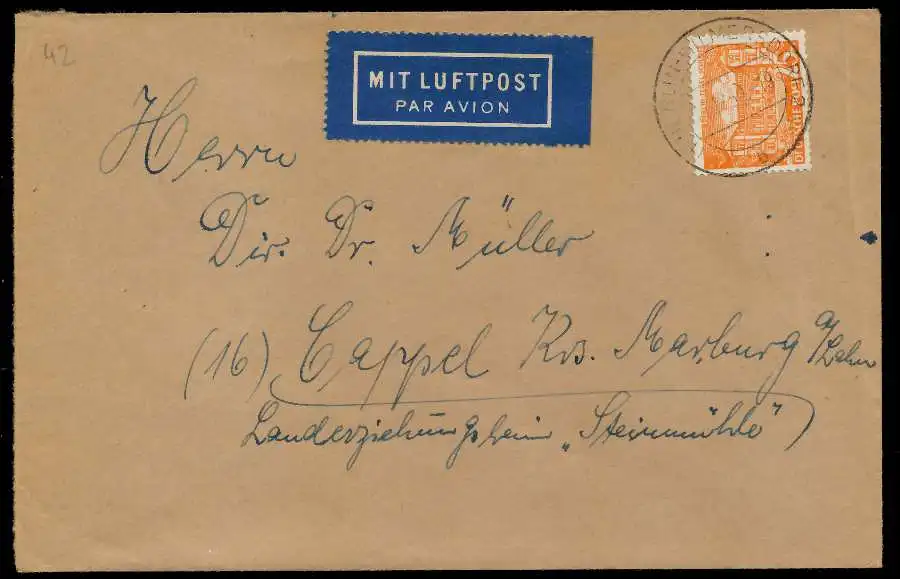 42
MIT LUFTPOST
PAR AVION
BERLIN-WILMERSDORF 2
Herrn
Dir. Dr. Müller
(16) Cappel Krs. Marburg a/Lahn
Landerziehungsheim „Steinmühle“